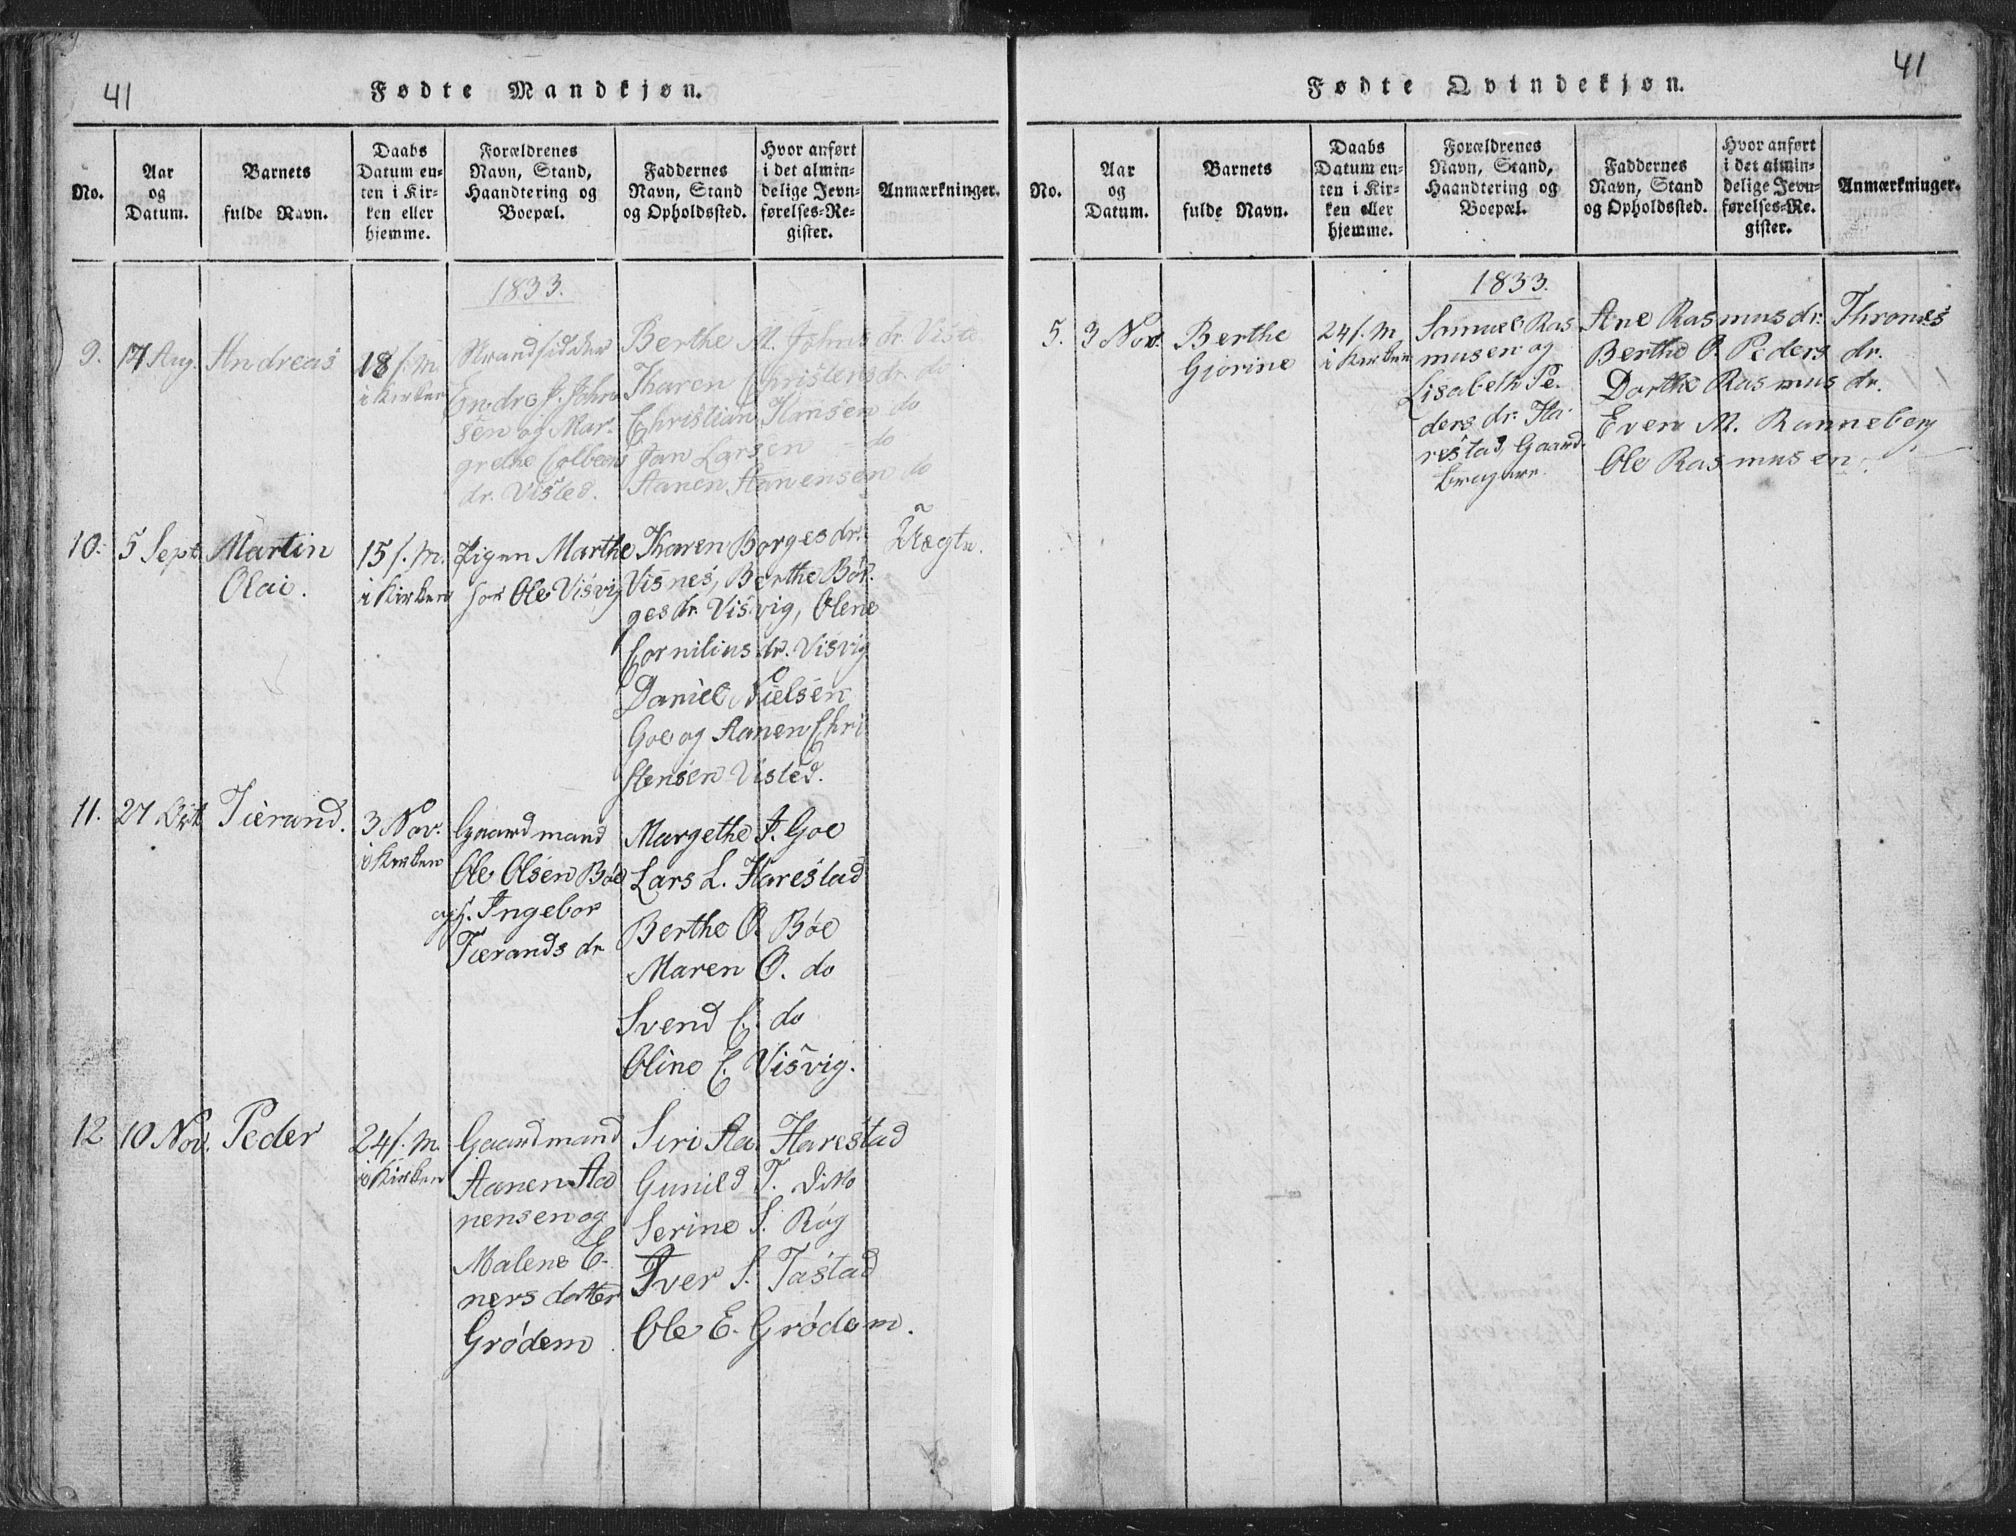 41
Fødte Mandkjøn.
No.
Aar
og
Datum.
Barnets
fulde Navn.
Daabs
Datum en-
ten i Kir-
ken eller
hjemme.
Forældrenes
Navn, Stand,
Haandtering og
Boepæl.
Faddernes
Navn, Stand
og Opholdssted.
Hvor anført
i det almin-
delige Jevn-
førelses-Re-
gister.
Anmærkninger.
1833.
9.
17 Aug.
Andreas
18 s. M.
i Kirken
Strandsidder
Endre J. John
sen og Mar-
grethe Colbeens
dr. Visted.
Berthe M. Johns dr. Viste
Karen Christens dr. do
Christian Hansen do
Jan Larsen - do
Aanen Aanensen do
10.
5 Sept.
Martin
Olai.
15 s. M.
i Kirken
Pigen Marthe
hos Ole Visvig
Karen Borges dr.
Visnes, Berthe Bør-
ges dr. Visvig, Olene
Cornilius dr. Visvig
Daniel Nielsen
Goe og Aanen Chri
stensen Visted.
Uægte.
11.
27 Oct.
Tierand.
3 Nov.
i Kirken
Gaardmand
Ole Olsen Bøe
og H. Ingebor
Tierands dr
Margethe J. Goe
Lars L. Harestad
Berthe O. Bøe
Maren O. do
Svend C. do
Oline C. Visvig.
12
10 Nov.
Peder
24 s. M.
i Kirken
Gaardmand
Aanen Aa
nensen og
Malene E-
ners datter
Grødem
Siri Aa. Harestad
Gunild T. Dito
Serine S. Røg
Iver S. Tastad
Ole E. Grødem.
41
Fødte Qvindekjøn.
No.
Aar
og
Datum.
Barnets
fulde Navn.
Daabs
Datum en-
ten i Kir-
ken eller
hjemme.
Forældrenes
Navn, Stand,
Haandtering og
Boepæl.
Faddernes
Navn, Stand
og Opholdssted.
Hvor anført
i det almin-
delige Jevn-
førelses-Re-
gister.
Anmærkninger.
1833.
5.
3 Nov.
Berthe
Giorine
24 s. M
i Kirken
Samuel Ras
musen og
Lisabeth Pe-
ders dr. Ha-
restad, Gaard-
brugere.
Ane Rasmus dr. Thrones
Berthe O. Peders dr.
Dorthe Rasmus dr.
Even M. Ranneberg
Ole Rasmusen.